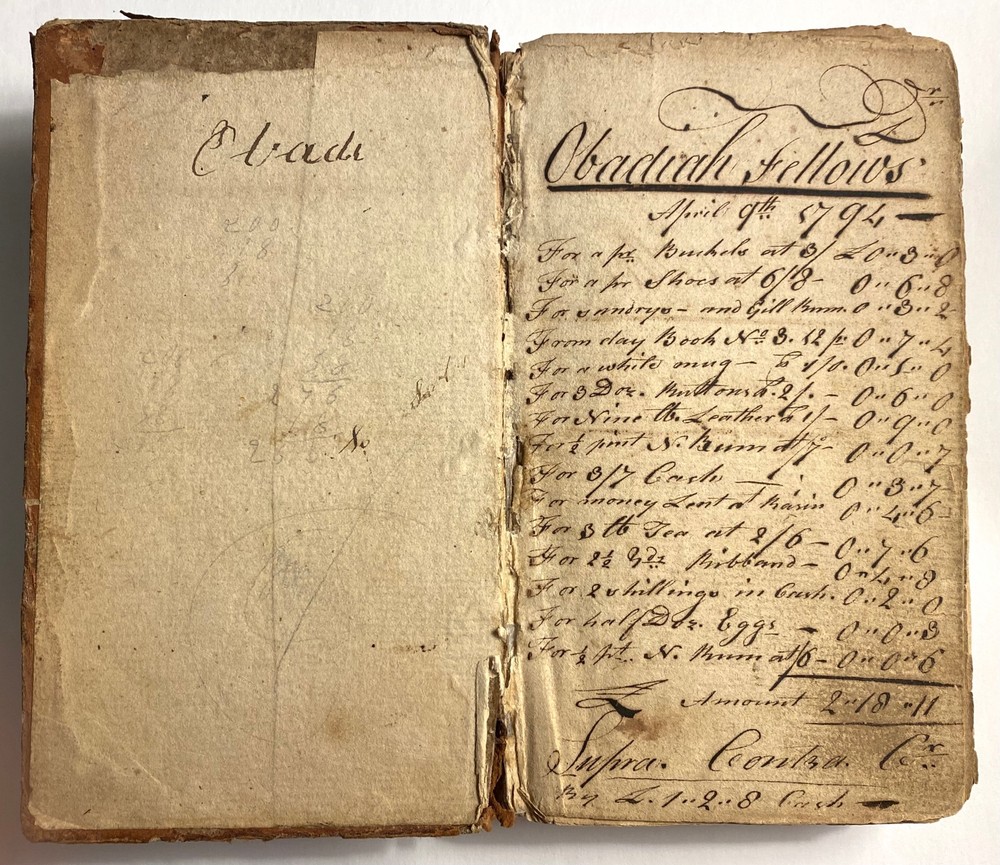 Obadi
200
8
No
Dr
Obadiah Fellows
April 9th 1794
For a pr Buckels at 3/ £ 0"3"0
For a pr Shoes at 6/8 - 0"6"8
For sundrys - and Gill Rum. 0"3"2
From day Book No 3. 12 p. 0"7"4
For a white mug - 1/0. 0"1"0
For 3 Doz. Buttons at 2/. - 0"6"0
For Nine lb. Leather at 1/ - 0"9"0
For ½ pint N. Rum at /7 - 0"0"7
For 3/7 Cash - 0"3"7
For money Lent at 0"4"6
For 3 lb Tea at 2/6 - 0"7"6
For 2½ Yds Ribband - 0"4"8
For 2 shillings in Cash. 0"2"0
For half Doz. Eggs - 0"0"3
For ½ pt. N. Rum at /6 - 0"0"6
£ Amount 2"18"11
Supra. Contra. Cr
By £. 1"2"8 Cash